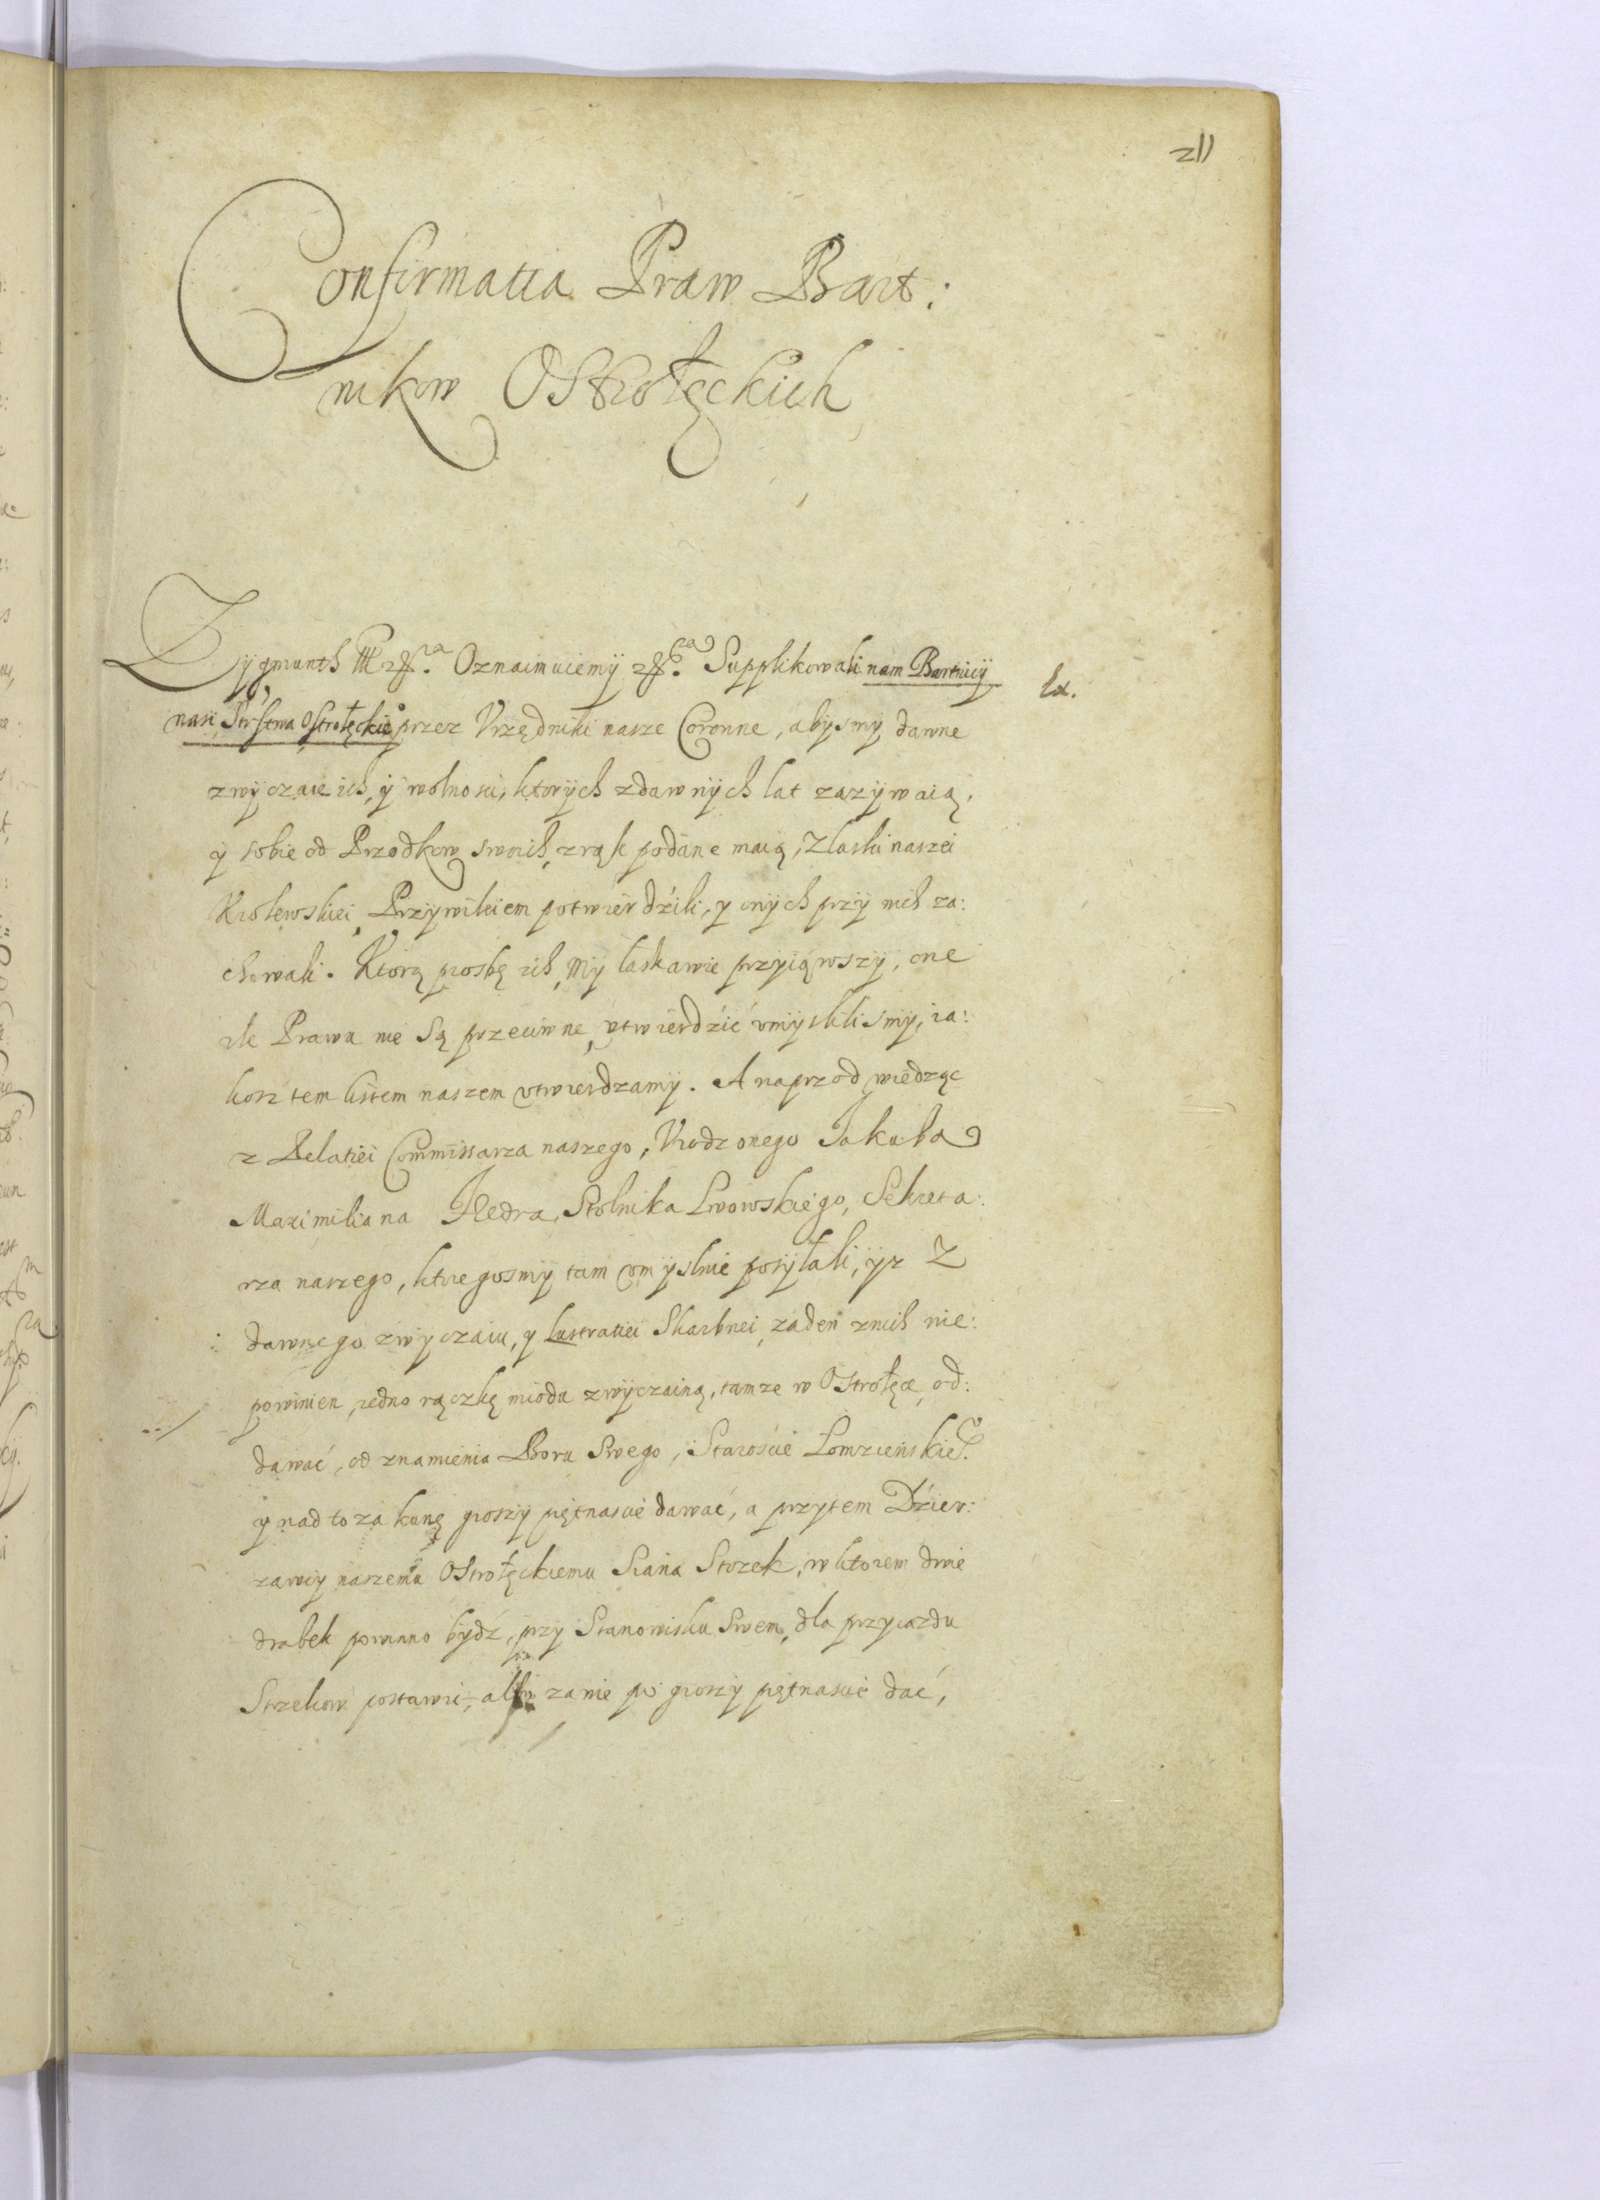 211
Confirmatia Praw Bart:
nikow Ostrołęckich
Zygmunth III etc. Oznaimuiemÿ etc. Supplikowali nam Bartnicÿ
nasi Strstwa Ostrołęckie° przez Vrzędniki nasze Coronne, abysmÿ dawne
zwÿczaie ich, ÿ wolnosci, ktorÿch zdawnÿch lat zazÿwaią,
ÿ sobie od Przodkow swoich, z rąk podane maią, Z laski naszei
Krolewskiei, Przÿwileiem potwierdźili, y onÿch przÿ nich za:
chowali. Ktorą prosbę ich, Mÿ łaskawie przÿiąwszÿ, one
ile Prawu nie Są przeciwne, vtwierdźić vmÿslilismÿ, ia:
kosz tem listem naszem vtwierdzamÿ. A naprzod, wiedząc
z Relatiei Commissarza naszego, Vrodzonego Jakuba
Maximiliana Fredra, Stolnika Lwowskiego, Sekreta:
rza naszego, ktregosmÿ tam vmÿslnie posÿłali, ÿz Z
dawnego zwÿczaiu, y Lustratiei Skarbnei, zaden znich nie:
powinien, iedno rączkę miodu zwÿczainą, tamze w Ostrołęce, od:
dawać, od znamienia Boru Swego, Staroscie Łomzienskie°
ÿ nad to za kunę groszÿ piętnascie dawać, a przytem Dźier:
zawcy naszemu Ostrołęckiemu Siana Stozek, w ktorem dwie
drabek powinno bÿdź, przy Stanowisku Swem, dla przyiazdu
Strzelcow postawić, albo zanie po groszy piętnascie dać,